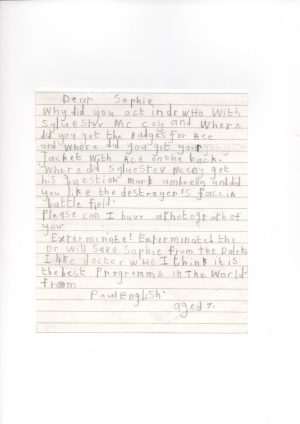 Dear Sophie
Why did you act in dr WHO With
Sylvester Mc coy and Where
did you get the badges for Ace
and Where did you get your
Jacket With Ace on the back.
Where did Sylvester mccoy get
his question mark umbrella and did
you like the destroyer's face in
battle field.
Please can I have a photograph of
you.
Exterminate! Exterminate! the
Dr will save Sophie from the Daleks
I like doctor WHO I think it is
the best Programme in The World
from
Paul English.
aged 7.